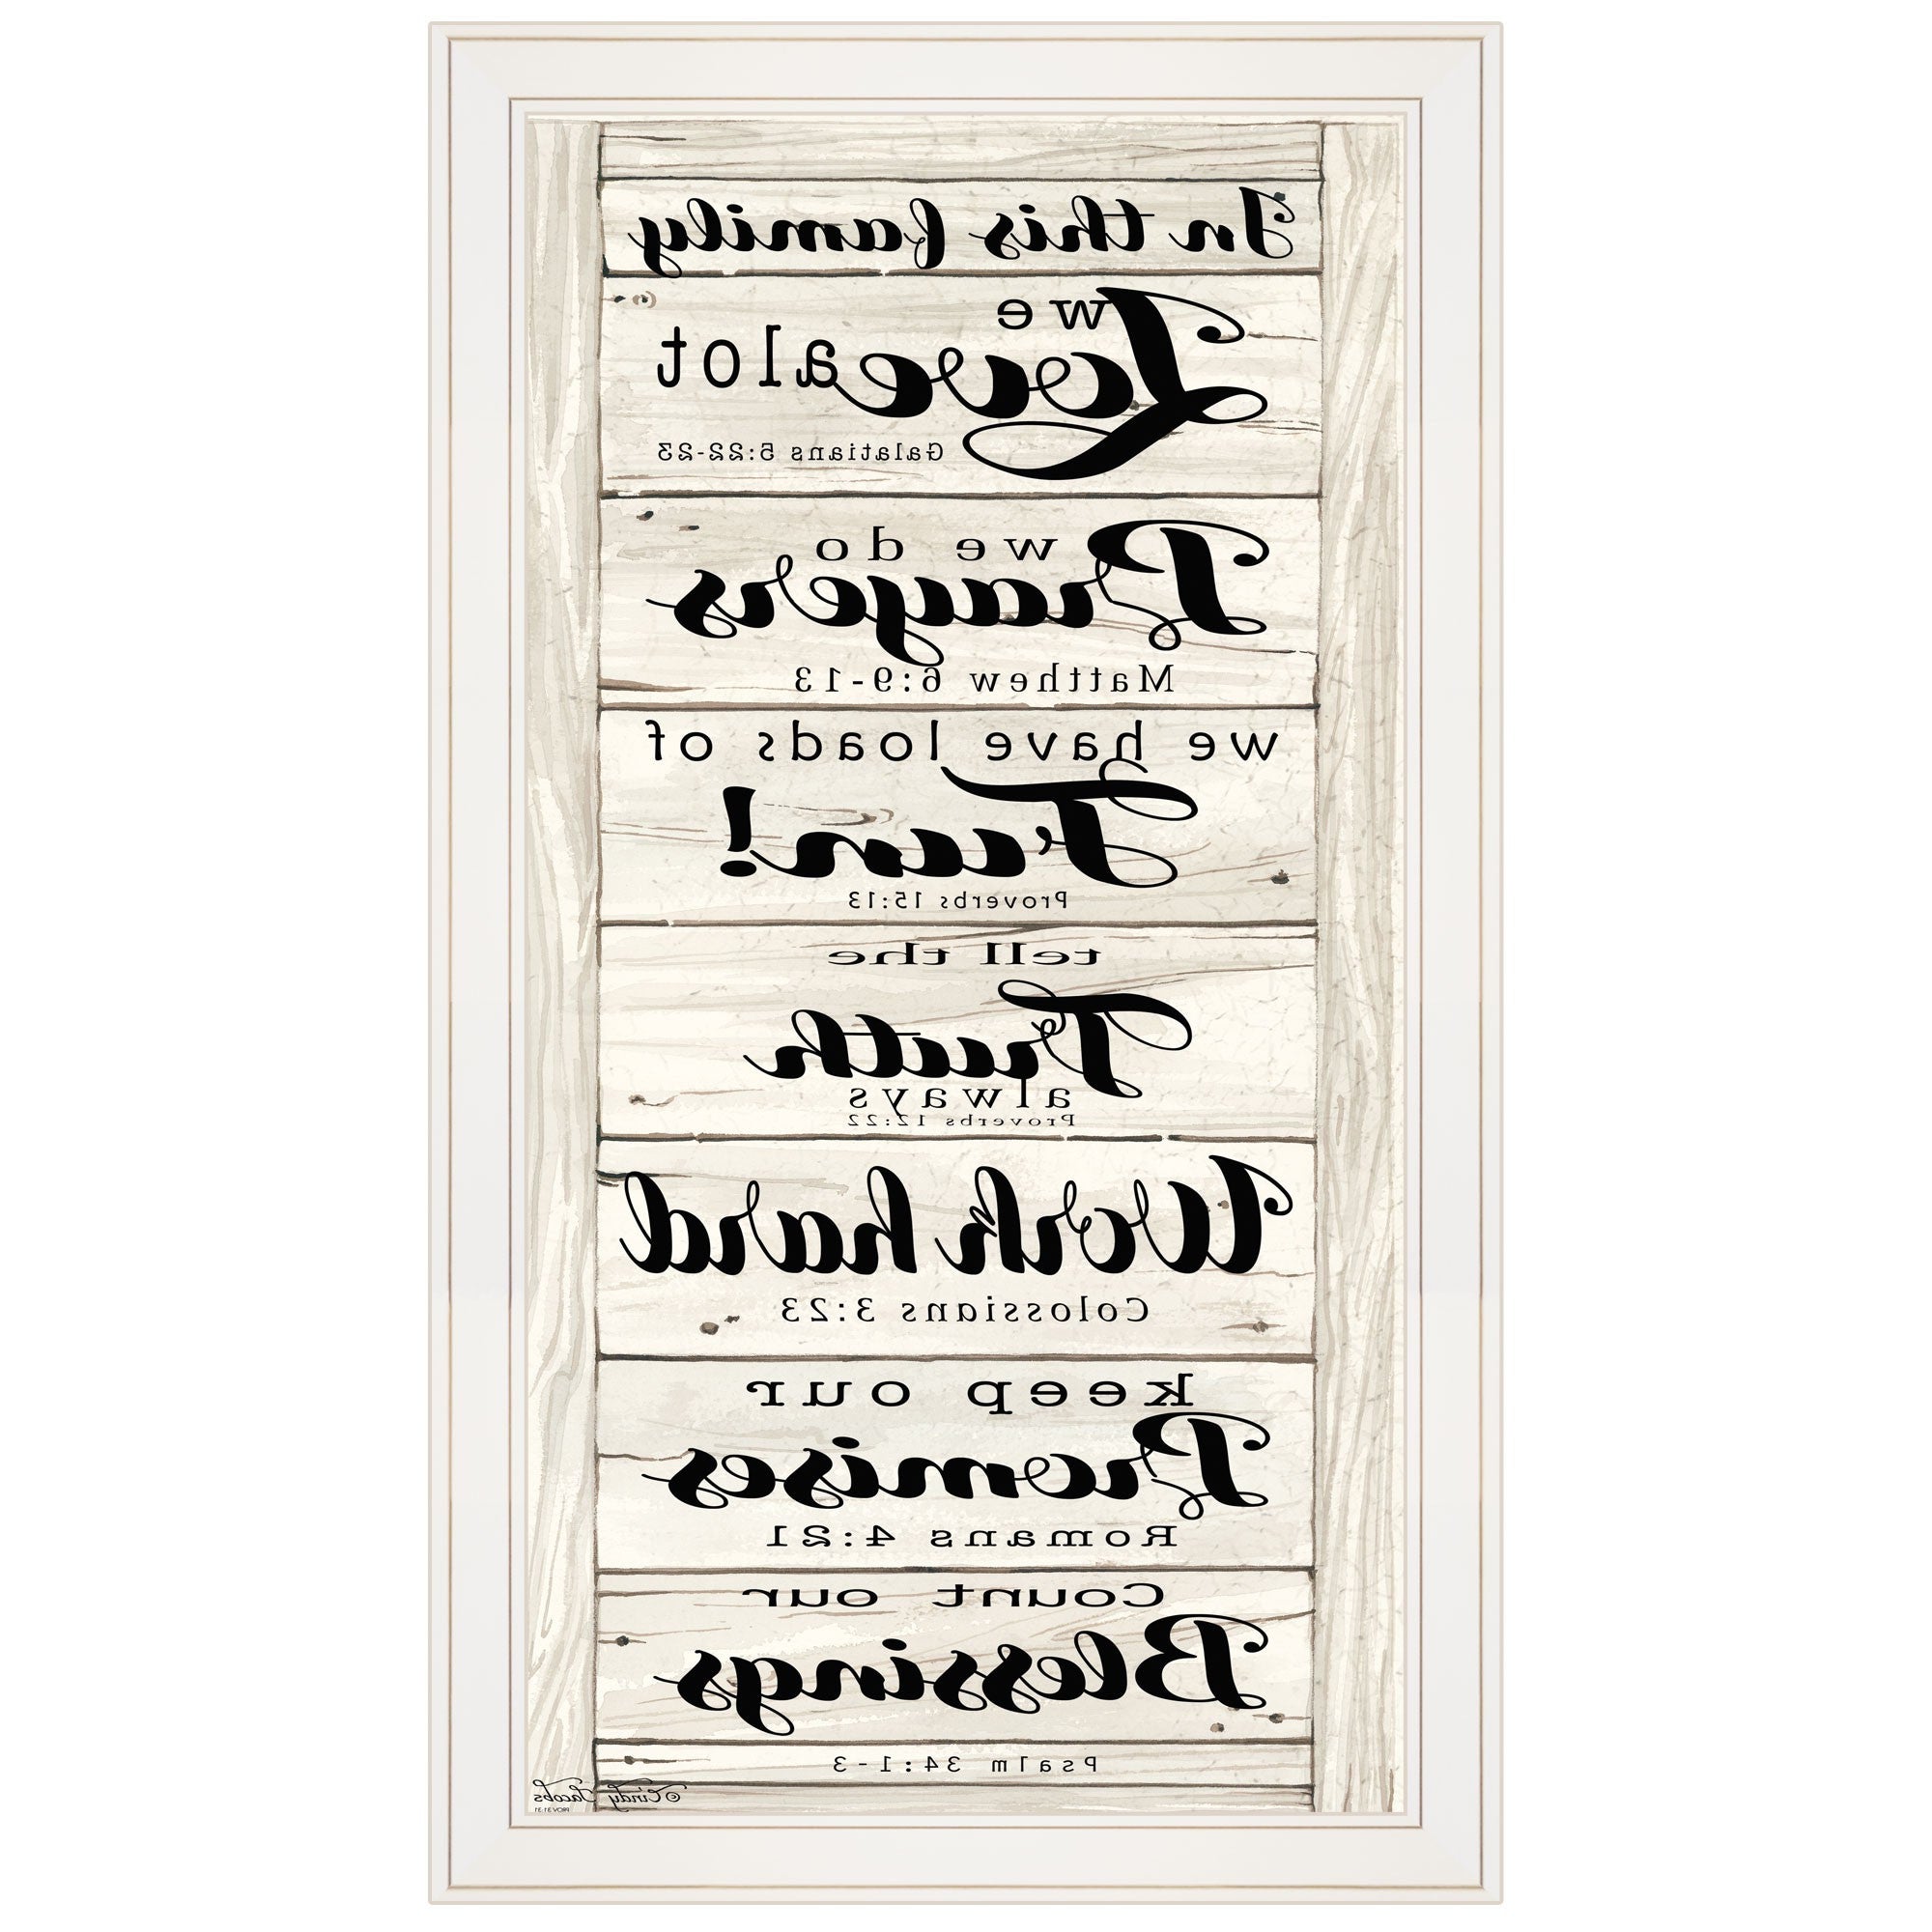 In this family
we
Love alot
Galatians 5:22-23
we do
Prayers
Matthew 6:9-13
we have loads of
Fun!
Proverbs 15:13
tell the
Truth
always
Proverbs 12:22
Work hard
Colossians 3:23
keep our
Promises
Romans 4:21
Count our
Blessings
Psalm 34:1-3
©Cindy Jacobs
PROV 31:31